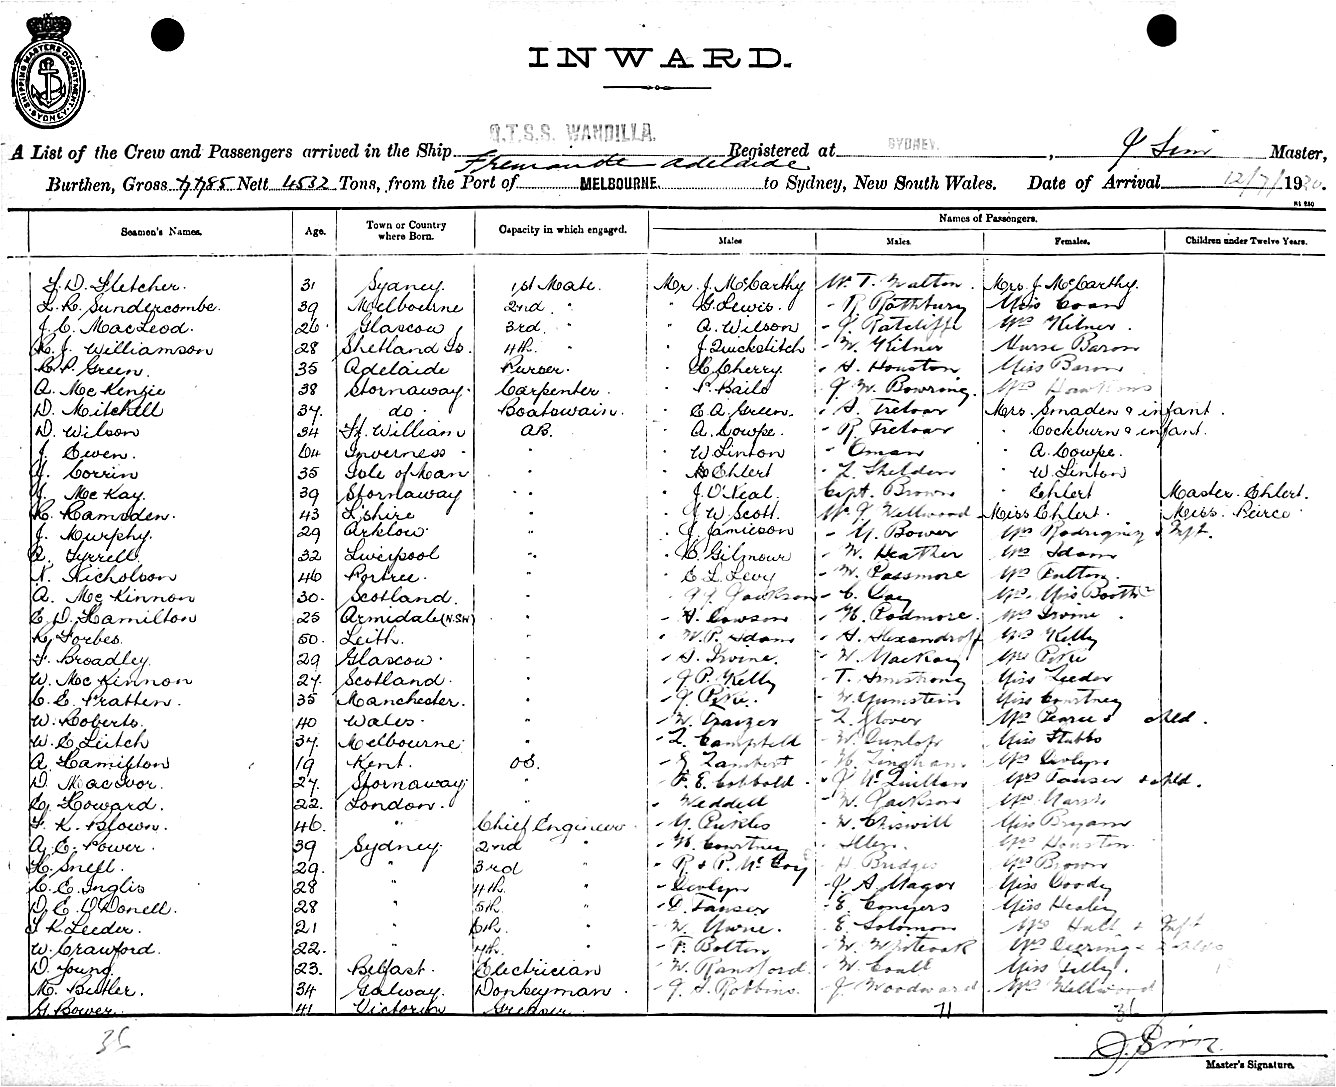 SHIPPING MASTERS DEPARTMENT. SYDNEY.
INWARD.
Q.T.S.S. WANDILLA. SYDNEY.
A List of the Crew and Passengers arrived in the Ship Registered at , J Sim Master,
Fremantle Adelaide
Burthen, Gross 7785 Nett 4532 Tons, from the Port of MELBOURNE. to Sydney, New South Wales. Date of Arrival 12/7/1920.
Seamen's Names. Age. Town or Country where Born. Capacity in which engaged. Names of Passengers.
Males Males. Females. Children under Twelve Years.
F. D. Fletcher. 31 Sydney. 1st Mate. Mr. J. McCarthy Mr. T. Walton. Mrs. J McCarthy.
L. R. Sundercombe. 39 Melbourne 2nd " " G. Lewis. " R. Rathbury Miss Coan
J. C. MacLeod. 26. Glascow 3rd. " " A. Wilson " J. Ratcliffe Mrs Kilner.
R. J. Williamson 28 Shetland Is. 4th. " " J Quickstitch " W. Kilner Nurse Baron
C. P. Green. 35 Adelaide Purser. " C Cherry " H. Houston Miss Baron
A. McKenzie 38 Stornaway. Carpenter. " P. Bails " J. W. Bowring. Mrs Hawkins
D. Mitchell 37. do. Boatswain. " E. A. Green. " S. Treloar Mrs. Smaden & infant.
D. Wilson 34 Ft. William AB. " A. Cowpe. " R. Treloar " Cockburn & infant.
J. Ewen. 64 Inverness " " W Linton " Oman " A. Cowpe.
J. Corrin 35 Isle of Man " " Ehlert " L. Sheldon " W. Linton
J. McKay. 39 Stornaway " " J. O'Neal. Capt. Brown " Ehlert Master. Ehlert.
R. Ramsden. 43 L'shire " " J W Scott. Mr J Wellwood Miss Ehlert. Miss. Peirce
J. Murphy. 29 Arklow. " " J. Jamieson " G. Bower Mrs Rodriguez & Inft.
R. Tyrrell 32 Liverpool " " C. Gilmour " W. Heather Mrs Adam
N. Nicholson 46 Portree. " " E L Levy " W. Passmore Mrs Fulton.
A. McKinnon 30. Scotland. " " Jackson " C. Day Mrs. Miss Booth
E. D. Hamilton 25 Armidale (N.S.W) " " H. Dawson " H. Podmore. Mrs Irvine
R. Forbes. 50. Leith. " " W. P. Adam " A. Alexandroff Mrs Kelly
F. Broadley. 29 Glascow. " " A. Irvine. " W. Mackay Mrs Pike
W. McKinnon 27. Scotland. " " J P. Kelly " T. Armstrong Miss Leeder
C. E. Pratten. 35 Manchester. " " J. Pike. " W. Gumstein Miss Courtney
W. Roberts. 40 Wales. " " W. " L. Glover Mrs Pearce & child.
W. E Leitch 37. Melbourne. " " L. Campbell " W Dunlop Miss Stubbs
A. Hamilton 19 Kent. OS. " G Lambert " H. Lingham Mrs Devlyn
D. MacIvor. 27. Stornaway. " " F. E. Cobbold " J. McQuillan Mrs Tanser & child.
G. Howard. 22. London. " " Weddell " W. Jackson Mrs
F. K. Brown. 46. " Chief Engineer. " G. Pickles " W. Chiswill Miss Bryan
A. E. Power. 39 Sydney. 2nd " " H. Courtney " Mrs Houston
H. Snell. 29. " 3rd " " R. & P. McCoy " H. Bridges Mrs Brown
C. E. Inglis 28 " 4th. " " Devlyn " J. A. Magor Miss Coody
D. E. O'Donell. 28 " 5th. " " D. Tanser " E. Conyers Miss Healey
T K Leeder. 21 " 6th. " " W. Yarne. " E. Solomon Mrs Hall & Inft
W. Crawford. 22. " 7th. " " F. Bolton " W. Whiteoak Mrs Deering &
D. Young 23. Belfast. Electrician " W. Ransford. " W. Coall Miss Tilly.
M. Butler. 34 Galway. Donkeyman. " J. A. Robbins. " J Woodward Mrs Wellwood
G. Bower. 41 Victoria Greaser. 71 36
36 J. Sim
Master's Signature.